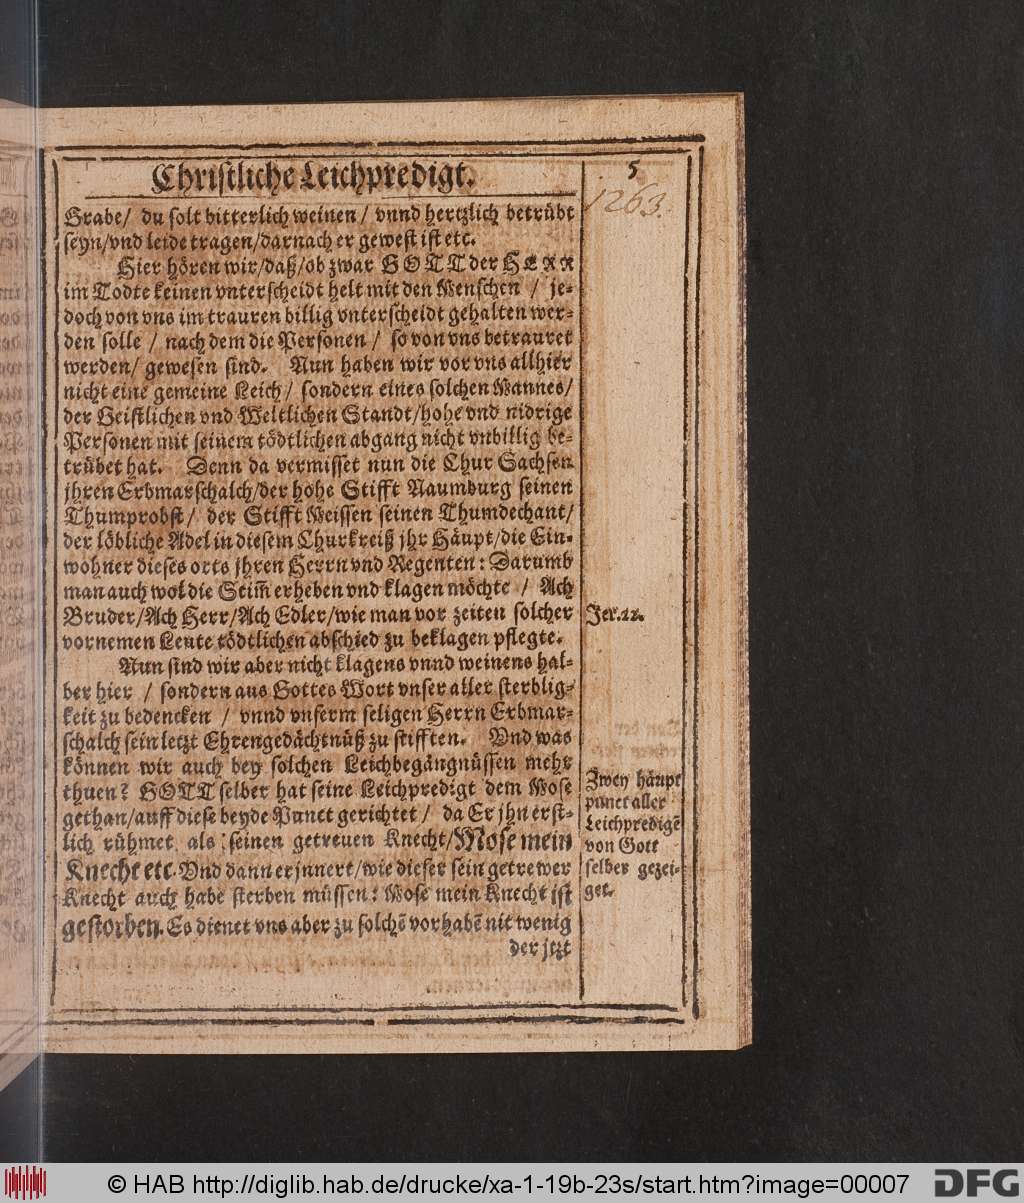 Christliche Leichpredigt.
5
1263.
Grabe/ du solt bitterlich weinen/ vnnd hertzlich betrübt
seyn/vnd leide tragen/darnach er gewest ist etc.
Hier hören wir/daß/ob zwar GOTT der HERR
im Todte keinen vnterscheidt helt mit den Menschen / je-
doch von vns im trauren billig vnterscheidt gehalten wer-
den solle / nach dem die Personen / so von vns betrauret
werden/ gewesen sind. Nun haben wir vor vns allhier
nicht eine gemeine Leich/ sondern eines solchen Mannes/
der Geistlichen vnd Weltlichen Standt/hohe vnd nidrige
Personen mit seinem tödtlichen abgang nicht vnbillig be-
trübet hat. Denn da vermisset nun die Chur Sachsen
jhren Erbmarschalch/der hohe Stifft Naumburg seinen
Thumprobst/ der Stifft Meissen seinen Thumdechant/
der löbliche Adel in diesem Churkreiß jhr Häupt/die Ein-
wohner dieses orts jhren Herrn vnd Regenten: Darumb
man auch wol die Stim̃ erheben vnd klagen möchte / Ach
Bruder/Ach Herr/Ach Edler/wie man vor zeiten solcher
vornemen Leute tödtlichen abschied zu beklagen pflegte.
Jer.22.
Nun sind wir aber nicht klagens vnnd weinens hal-
ber hier / sondern aus Gottes Wort vnser aller sterblig-
keit zu bedencken / vnnd vnserm seligen Herrn Erbmar-
schalch sein letzt Ehrengedächtnüß zu stifften. Vnd was
können wir auch bey solchen Leichbegängnüssen mehr
thuen? GOTT selber hat seine Leichpredigt dem Mose
gethan/auff diese beyde Punct gerichtet / da Er jhn erst-
lich rühmet als seinen getreuen Knecht/Mose mein
Knecht etc. Vnd dann erjnnert/wie dieser sein getrewer
Knecht auch habe sterben müssen: Mose mein Knecht ist
gestorben. Es dienet vns aber zu solchẽ vorhabẽ nit wenig
der jtzt
Zwey häupt
punct aller
Leichpredigẽ
von Gott
selber gezei-
get.
© HAB http://diglib.hab.de/drucke/xa-1-19b-23s/start.htm?image=00007
DFG